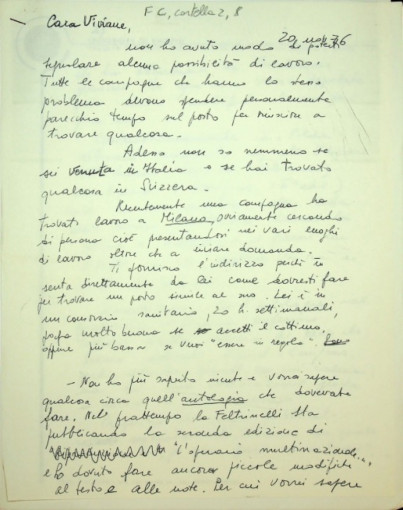 F C, cartella 2, 8
Cara Viviane,
20 nov 76
non ho avuto modo di poterti
segnalare alcuna possibilità di lavoro.
Tutte le compagne che hanno lo stesso
problema devono spendere personalmente
parecchio tempo sul posto per riuscire a
trovare qualcosa.
Adesso non so nemmeno se
sei venuta in Italia o se hai trovato
qualcosa in Svizzera.
Recentemente una compagna ha
trovato lavoro a Milano, ovviamente cercando
di persona cioè presentandosi nei vari luoghi
di lavoro oltre che a inviare domanda.
Ti fornirò l'indirizzo perché tu
senta direttamente da lei come dovresti fare
per trovare un posto simile al suo. Lei è in
un consorzio sanitario, 20 h. settimanali,
paga molto buona se accetti il cottimo,
oppure più bassa se vuoi "essere in regola".
– Non ho più saputo niente e vorrei sapere
qualcosa circa quell'antologia che dovevate
fare. Nel frattempo la Feltrinelli sta
pubblicando la seconda edizione di
"L'operaio multinazionale..."
e ho dovuto fare ancora piccole modifiche
al testo e alle note. Per cui vorrei sapere